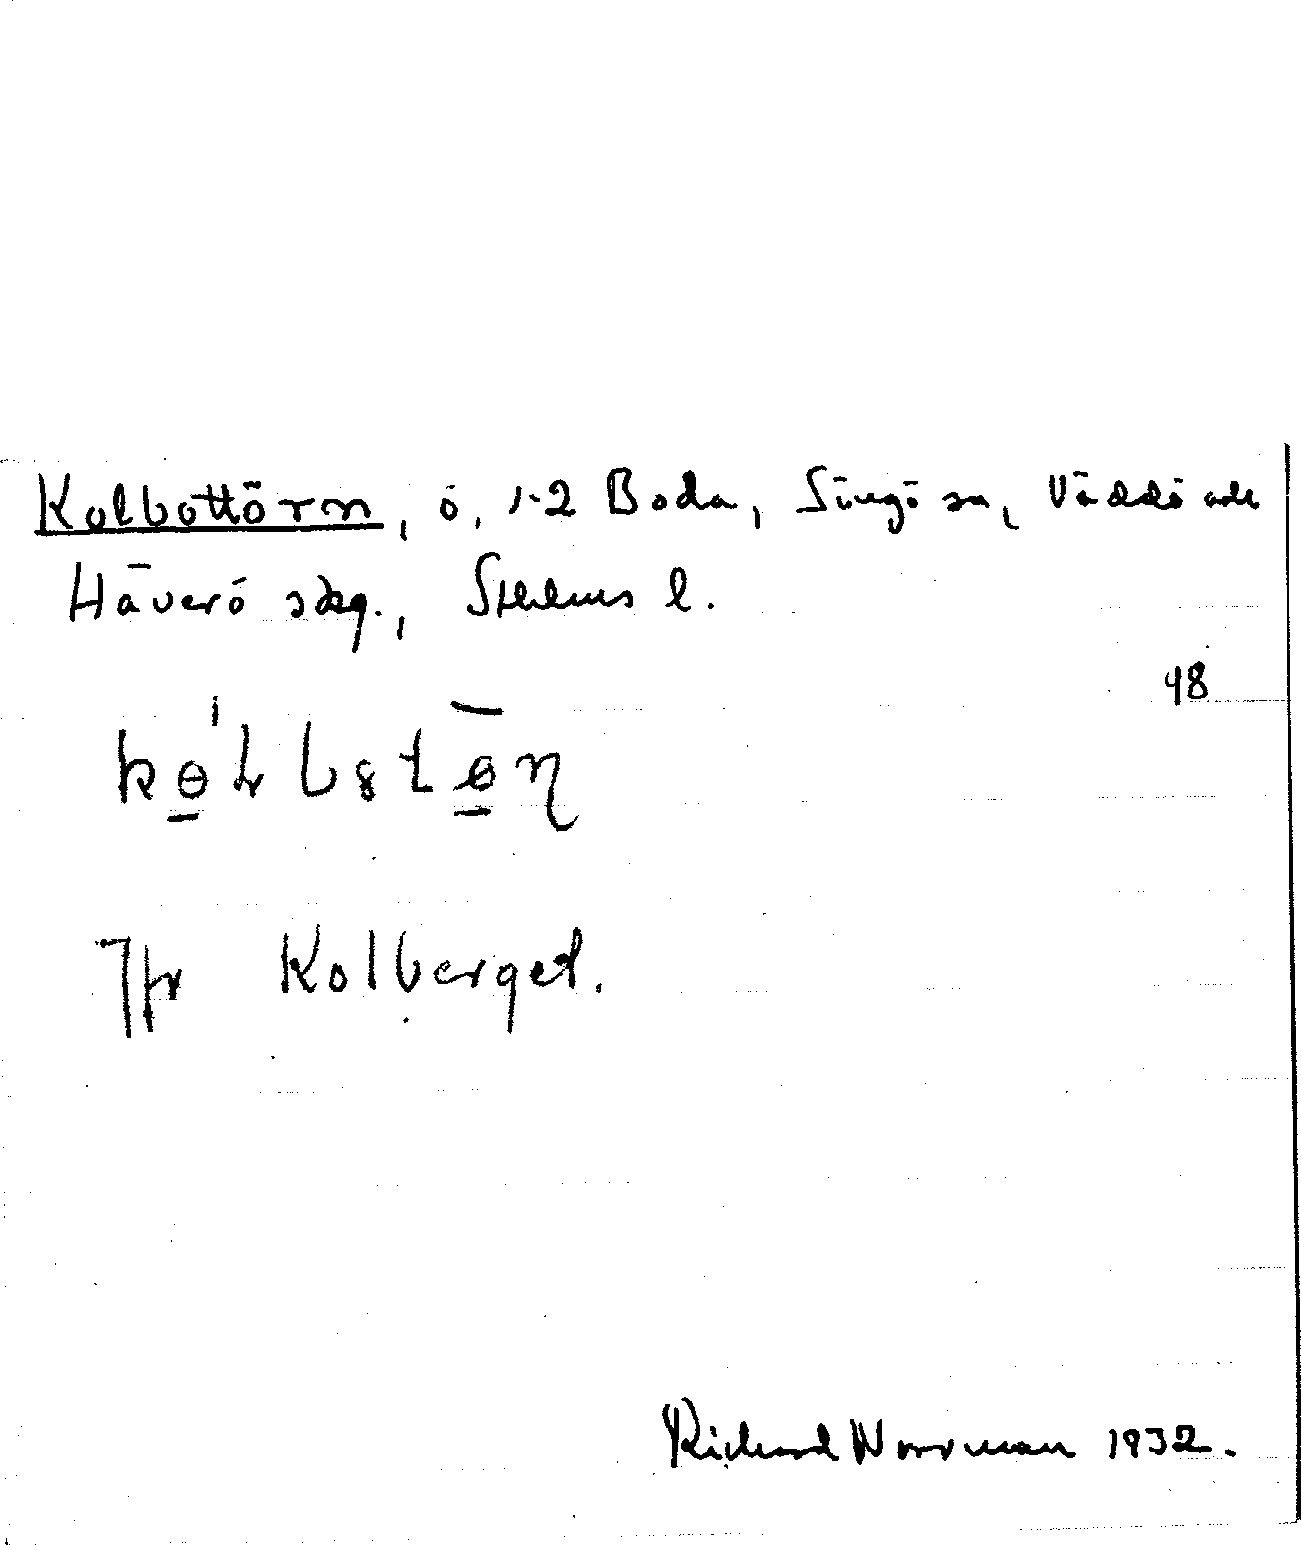 Kolbottörn, ö, 1-2 Boda, Singö sn, Väddö och
Häverö skg., Sthlms l.
48
Jfr Kolberget.
Richard Norrman 1932.